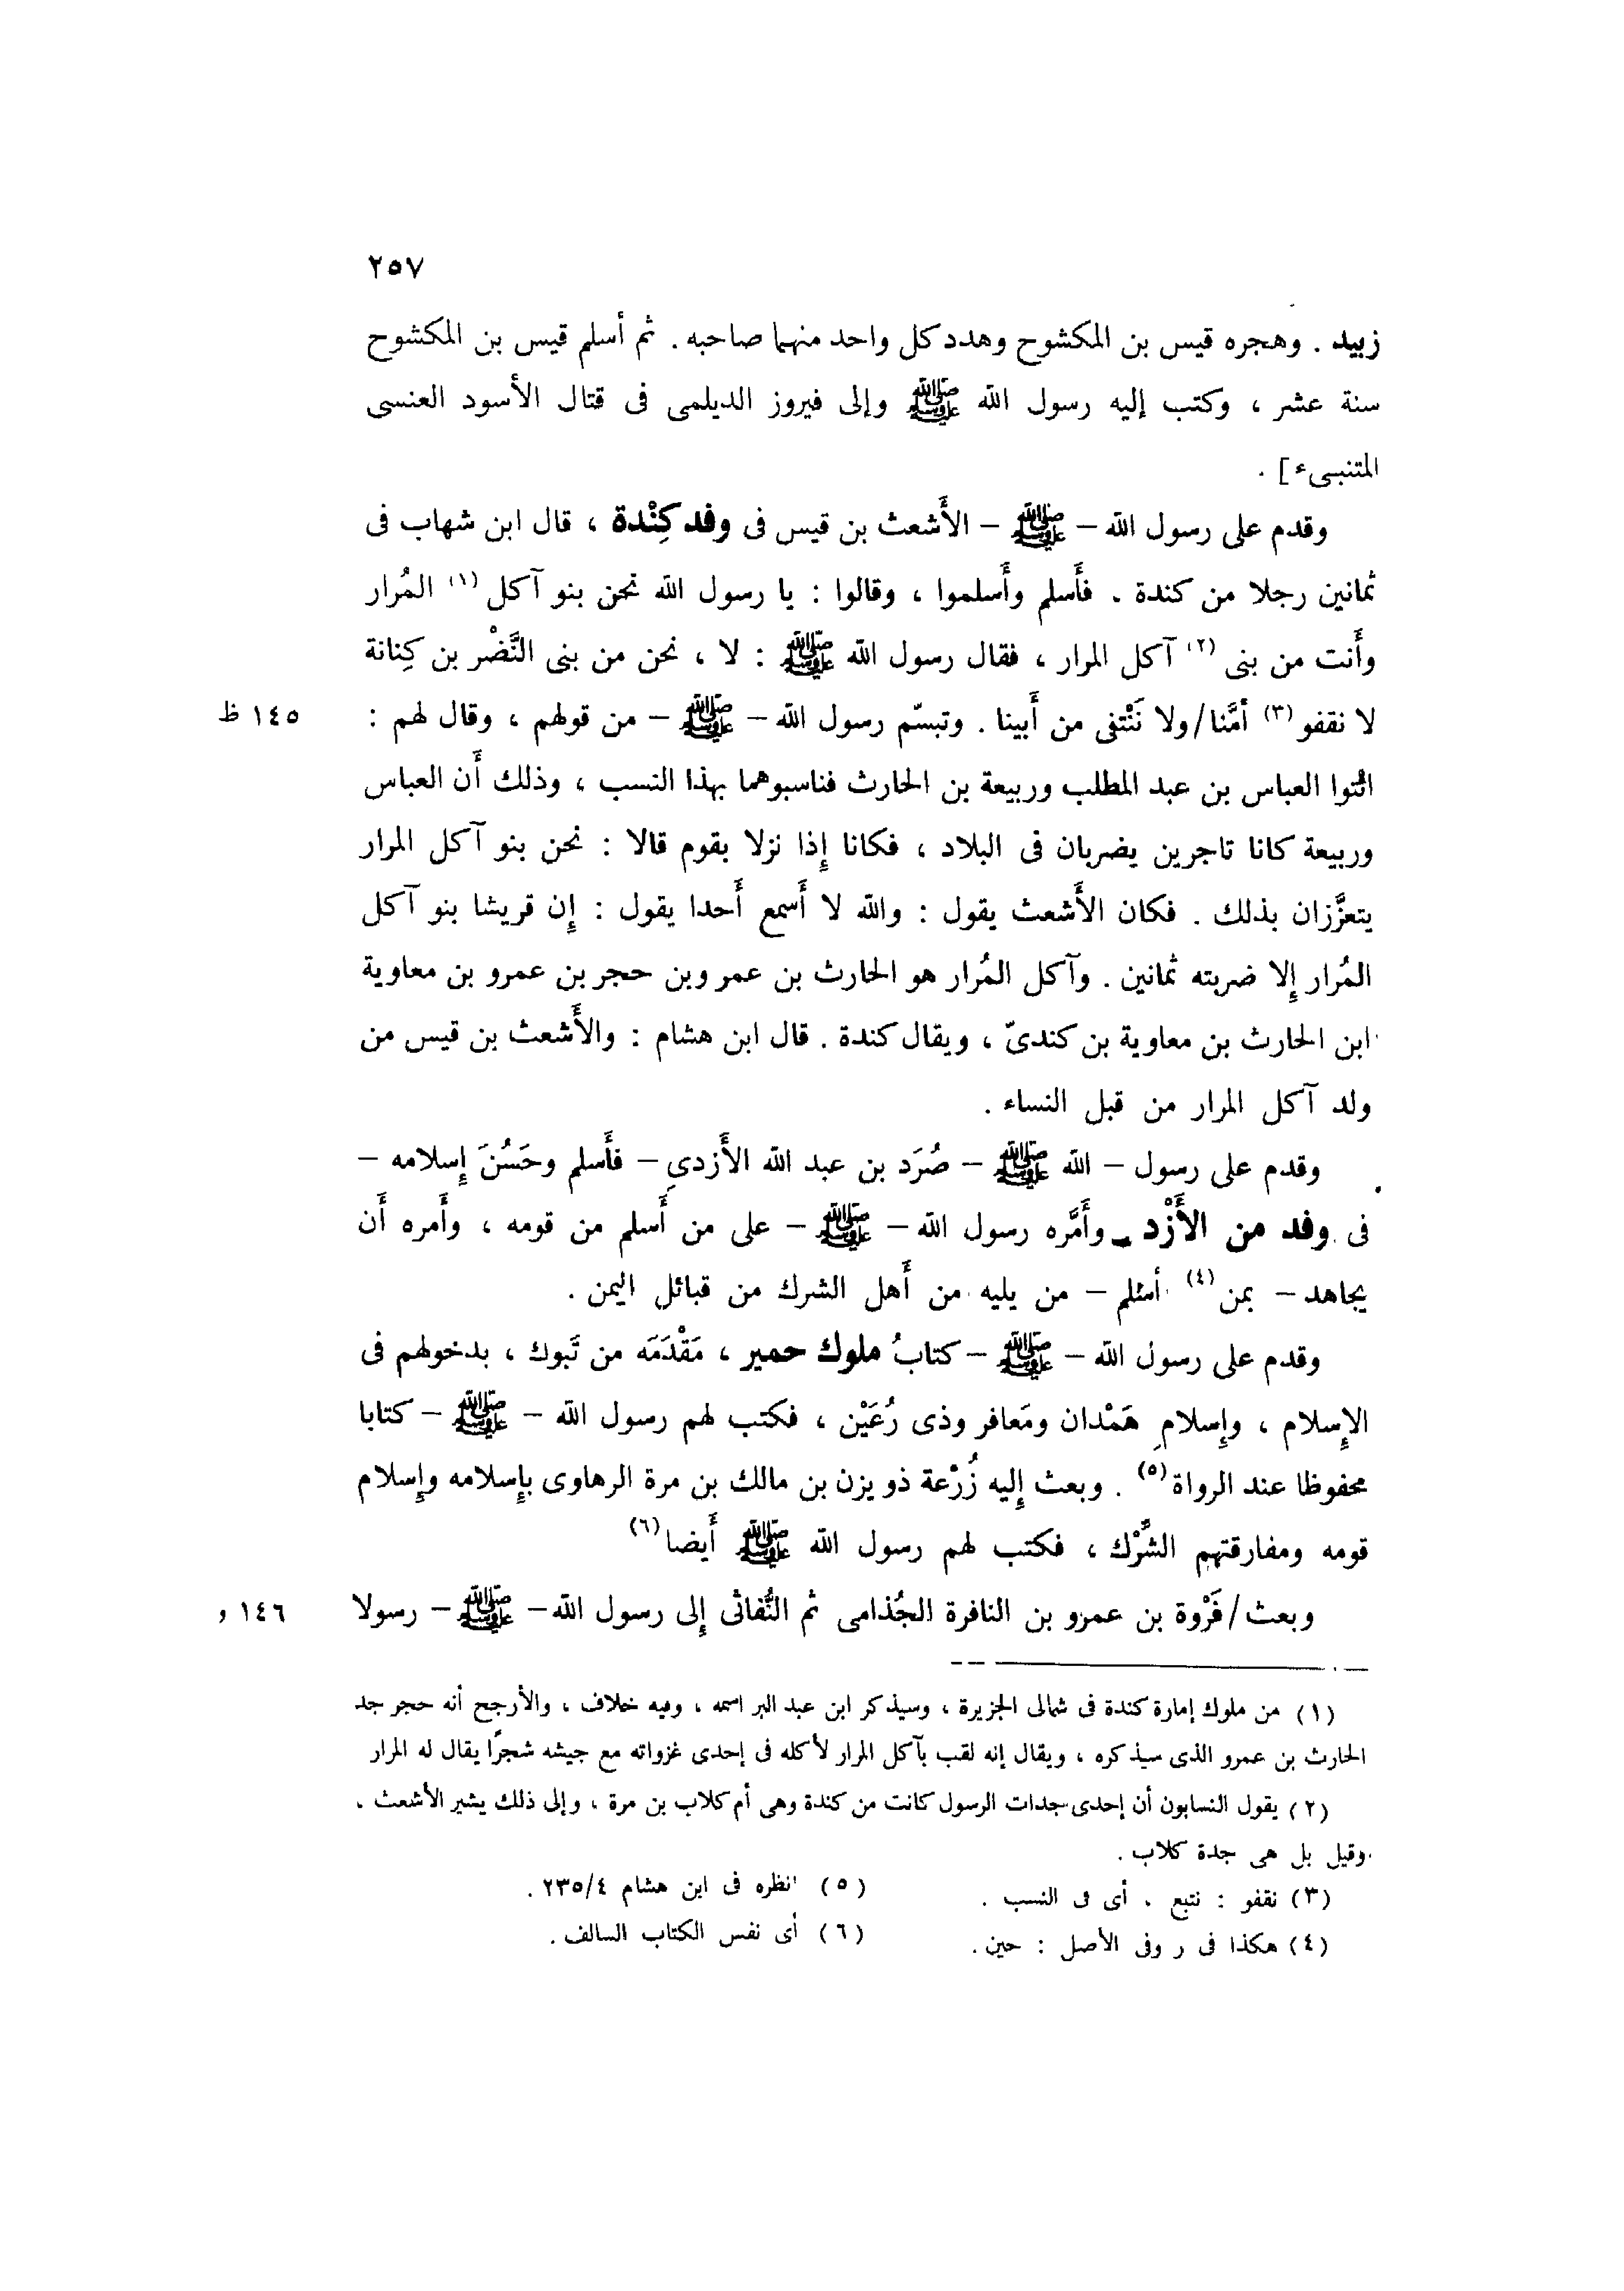 ٢٥٧
زبيد . وهجره قيس بن المكشوح وهدد كل واحد منهما صاحبه . ثم أسلم قيس بن المكشوح
سنة عشر ، وكتب إليه رسول الله ﷺ وإلى فيروز الديلمى فى قتال الأسود العنسى
المتنبىء] .
وقدم على رسول الله – ﷺ – الأَشعث بن قيس فى وفد كِنْدة ، قال ابن شهاب فى
ثمانين رجلا من كندة . فأَسلم وأَسلموا ، وقالوا : يا رسول الله نحن بنو آكل (١) المُرار
وأَنت من بنى (٢) آكل المرار ، فقال رسول الله ﷺ : لا ، نحن من بنى النَّضْر بن كِنانة
لا نقفو (٣) أمَّنا/ولا نَنْتفى من أَبينا . وتبسّم رسول الله – ﷺ – من قولهم ، وقال لهم : ١٤٥ ظ
ائتوا العباس بن عبد المطلب وربيعة بن الحارث فناسبوهما بهذا النسب ، وذلك أَن العباس
وربيعة كانا تاجرين يضربان فى البلاد ، فكانا إِذا نزلا بقوم قالا : نحن بنو آكل المرار
يتعزَّزان بذلك . فكان الأَشعث يقول : والله لا أَسمع أَحدا يقول : إِن قريشا بنو آكل
المُرار إِلا ضربته ثمانين . وآكل المُرار هو الحارث بن عمرو بن حجر بن عمرو بن معاوية
ابن الحارث بن معاوية بن كندىّ ، ويقال كندة . قال ابن هشام : والأَشعث بن قيس من
ولد آكل المرار من قبل النساء .
وقدم على رسول – الله ﷺ – صُرَد بن عبد الله الأَزدىِ – فأَسلم وحَسُنَ إِسلامه –
فى وفد من الأَزْد – وأَمَّره رسول الله – ﷺ – على من أَسلم من قومه ، وأَمره أَن
يجاهد – بمن (٤) أسلم – من يليه من أَهل الشرك من قبائل اليمن .
وقدم على رسول الله – ﷺ – كتابُ ملوك حمير ، مَقْدَمَه من تَبوك ، بدخولهم فى
الإِسلام ، وإِسلامِ هَمْدان ومَعافر وذى رُعَيْن ، فكتب لهم رسول الله – ﷺ – كتابا
محفوظا عند الرواة (٥) . وبعث إِليه زُرْعة ذو يزن بن مالك بن مرة الرهاوى بإِسلامه وإِسلام
قومه ومفارقتهم الشِّرْك ، فكتب لهم رسول الله ﷺ أَيضا (٦)
وبعث/فَرْوة بن عمرو بن النافرة الجُذامى ثم النُّفاثى إِلى رسول الله – ﷺ – رسولا ١٤٦ و
(١) من ملوك إمارة كندة فى شمالى الجزيرة ، وسيذكر ابن عبد البر اسمه ، وفيه خلاف ، والأرجح أنه حجر جد
الحارث بن عمرو الذى سيذكره ، ويقال إنه لقب بآكل المرار لأكله فى إحدى غزواته مع جيشه شجرًا يقال له المرار
(٢) يقول النسابون أن إحدى جدات الرسول كانت من كندة وهى أم كلاب بن مرة ، وإلى ذلك يشير الأشعث .
وقيل بل هى جدة كلاب .
(٣) نقفو : نتبع ، أى فى النسب .
(٤) هكذا فى ر وفى الأصل : حين .
(٥) انظره فى ابن هشام ٢٣٥/٤ .
(٦) أى نفس الكتاب السالف .